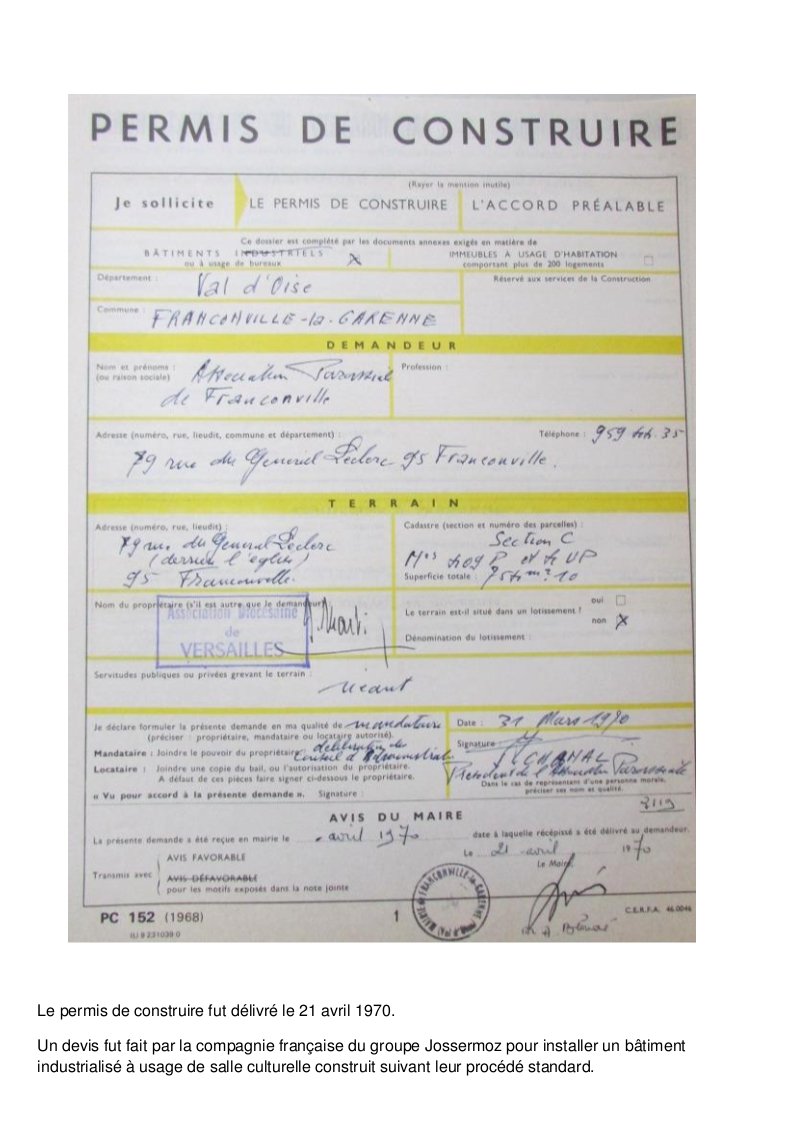 PERMIS DE CONSTRUIRE
(Rayer la mention inutile)
Je sollicite LE PERMIS DE CONSTRUIRE L'ACCORD PRÉALABLE
Ce dossier est complété par les documents annexes exigés en matière de
BÂTIMENTS INDUSTRIELS
ou à usage de bureaux X
IMMEUBLES À USAGE D'HABITATION
comportant plus de 200 logements
Département : Val d'Oise
Réservé aux services de la Construction
Commune : FRANCONVILLE-la-GARENNE
DEMANDEUR
Nom et prénoms :
(ou raison sociale)
Association Paroissial
de Franconville
Profession :
Adresse (numéro, rue, lieudit, commune et département) :
Téléphone : 959 44.35
79 rue du General Leclerc 95 Franconville.
TERRAIN
Adresse (numéro, rue, lieudit) :
79 rue du General Leclerc
(derrière l'eglise)
95 Franconville.
Cadastre (section et numéro des parcelles) :
Section C
Superficie totale :
Nom du propriétaire (s'il est autre que le demandeur)
Association Diocésaine
de
VERSAILLES
Le terrain est-il situé dans un lotissement ?
oui
non X
Dénomination du lotissement :
Servitudes publiques ou privées grevant le terrain :
néant
Je déclare formuler la présente demande en ma qualité de mandataire
(préciser : propriétaire, mandataire ou locataire autorisé).
Mandataire : Joindre le pouvoir du propriétaire. délibération du
Conseil d'Administration
Locataire : Joindre une copie du bail, ou l'autorisation du propriétaire.
A défaut de ces pièces faire signer ci-dessous le propriétaire.
« Vu pour accord à la présente demande ». Signature :
Date : 31 Mars 1970
Signature
CHAMAL
President de l'Association Paroissiale
Dans le cas de représentant d'une personne morale,
préciser ses nom et qualité.
3119
AVIS DU MAIRE
La présente demande a été reçue en mairie le avril 1970 date à laquelle récépissé a été délivré au demandeur.
Le 21 avril 1970
Le Maire,
Transmis avec
AVIS FAVORABLE
AVIS DÉFAVORABLE
pour les motifs exposés dans la note jointe
MAIRIE de FRANCONVILLE-la-GARENNE
(Val d'Oise)
PC 152 (1968)
1
C.E.R.F.A. 46.0046
(U) 8 231039 0
Le permis de construire fut délivré le 21 avril 1970.
Un devis fut fait par la compagnie française du groupe Jossermoz pour installer un bâtiment
industrialisé à usage de salle culturelle construit suivant leur procédé standard.